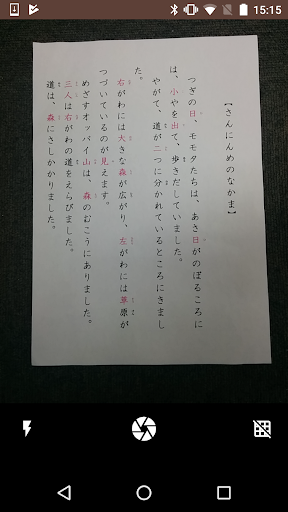 15:15
【さんにんめのなかま】
つぎの日、モモタたちは、あさ日がのぼるころに
は、小やを出て、歩きだしていました。
やがて、道が二つに分かれているところにきまし
た。
右がわには大きな森が広がり、左がわには草原が
つづいているのが見えます。
めざすオッパイ山は、森のむこうにありました。
三人は右がわの道をえらびました。
道は、森にさしかかりました。